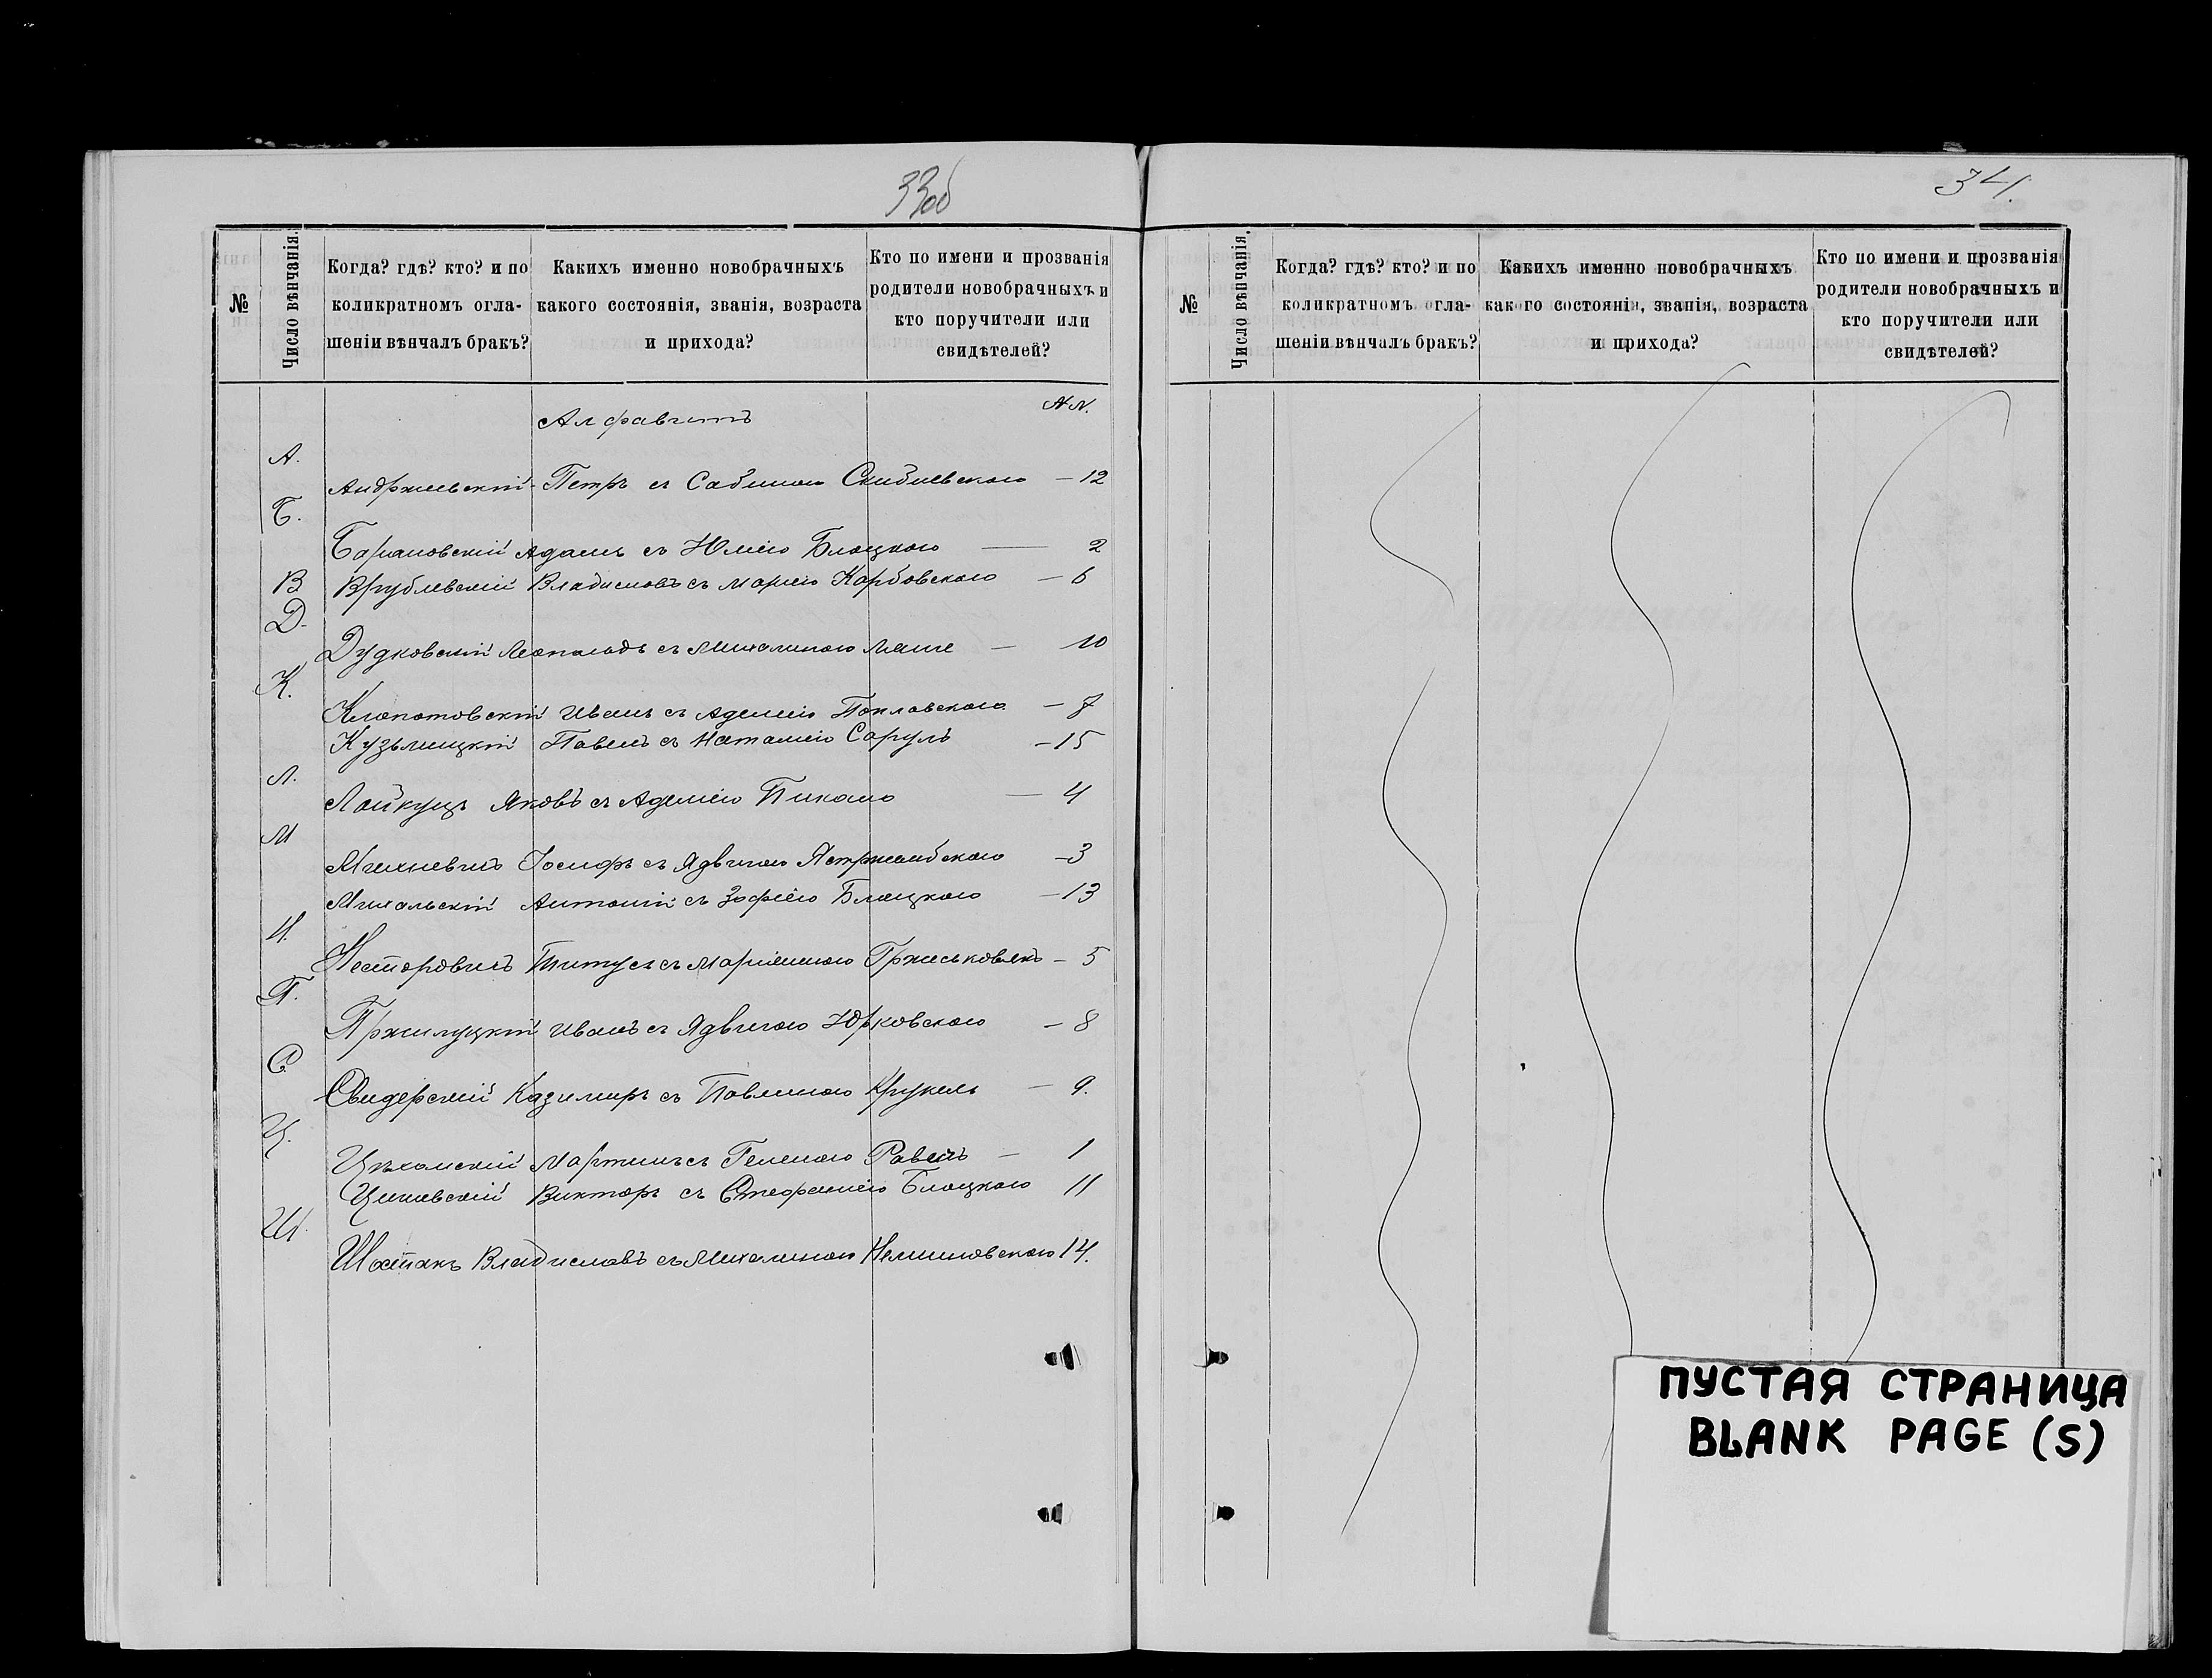 33об
№
Число вѣнчанія.
Когда? гдѣ? кто? и по
коликратномъ огла-
шеніи вѣнчалъ бракъ?
Какихъ именно новобрачныхъ
какого состоянія, званія, возраста
и прихода?
Кто по имени и прозванія
родители новобрачныхъ и
кто поручители или
свидѣтелей?
Алфавитъ
NN.
А.
Андржеевскій Петръ съ Сабиною Скибневскою — 12
Б.
Барановскій Адамъ съ Юліею Блоцкою — 2
В Врублевскій Владиславъ съ Маріею Карбовскою — 6
Д.
Дудковскій Леопольдъ съ Михалиною — 10
К.
Клопотовскій Иванъ съ Аделіею Поплавскою — 7
Кузьмицкій Павелъ съ Наталіею Саруль — 15
Л.
Лойкуцъ Яковъ съ Аделіею — 4
М
Михневичъ Іосифъ съ Ядвигою Ястржембскою — 3
Михальскій Антоній съ Зофіею Блоцкою — 13
Н.
Несторовичъ Титусъ съ Маріанною Гржеськовякъ — 5
П.
Пржилуцкій Иванъ съ Ядвигою Юрковскою — 8
С
Свидерскій Казимиръ съ Павлиною Крукель — 9.
Ц.
Цѣхомскій Мартинъ съ Геленою Равейъ — 1
Виктор съ Стефаніею Блоцкою 11
Ш.
Шостакъ Владиславъ съ Михалиною 14.
34.
№
Число вѣнчанія.
Когда? гдѣ? кто? и по
коликратномъ огла-
шеніи вѣнчалъ бракъ?
Какихъ именно новобрачныхъ
какого состояні, званія, возраста
и прихода?
Кто по имени и прозванія
родители новобрачныхъ и
кто поручители или
свидѣтелей?
ПУСТАЯ СТРАНИЦА
BLANK PAGE (S)